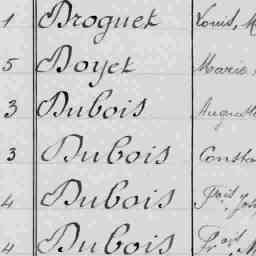 1 Broguet Louis, M
5 Boyet Marie
3 Dubois Auguste
3 Dubois Consta
4 Dubois Fçois Jos
4 Dubois